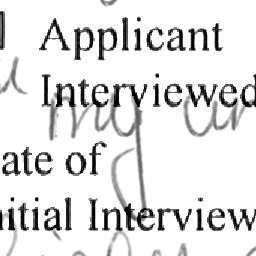 Applicant
Interviewed
my un
ate of
nitial Interview